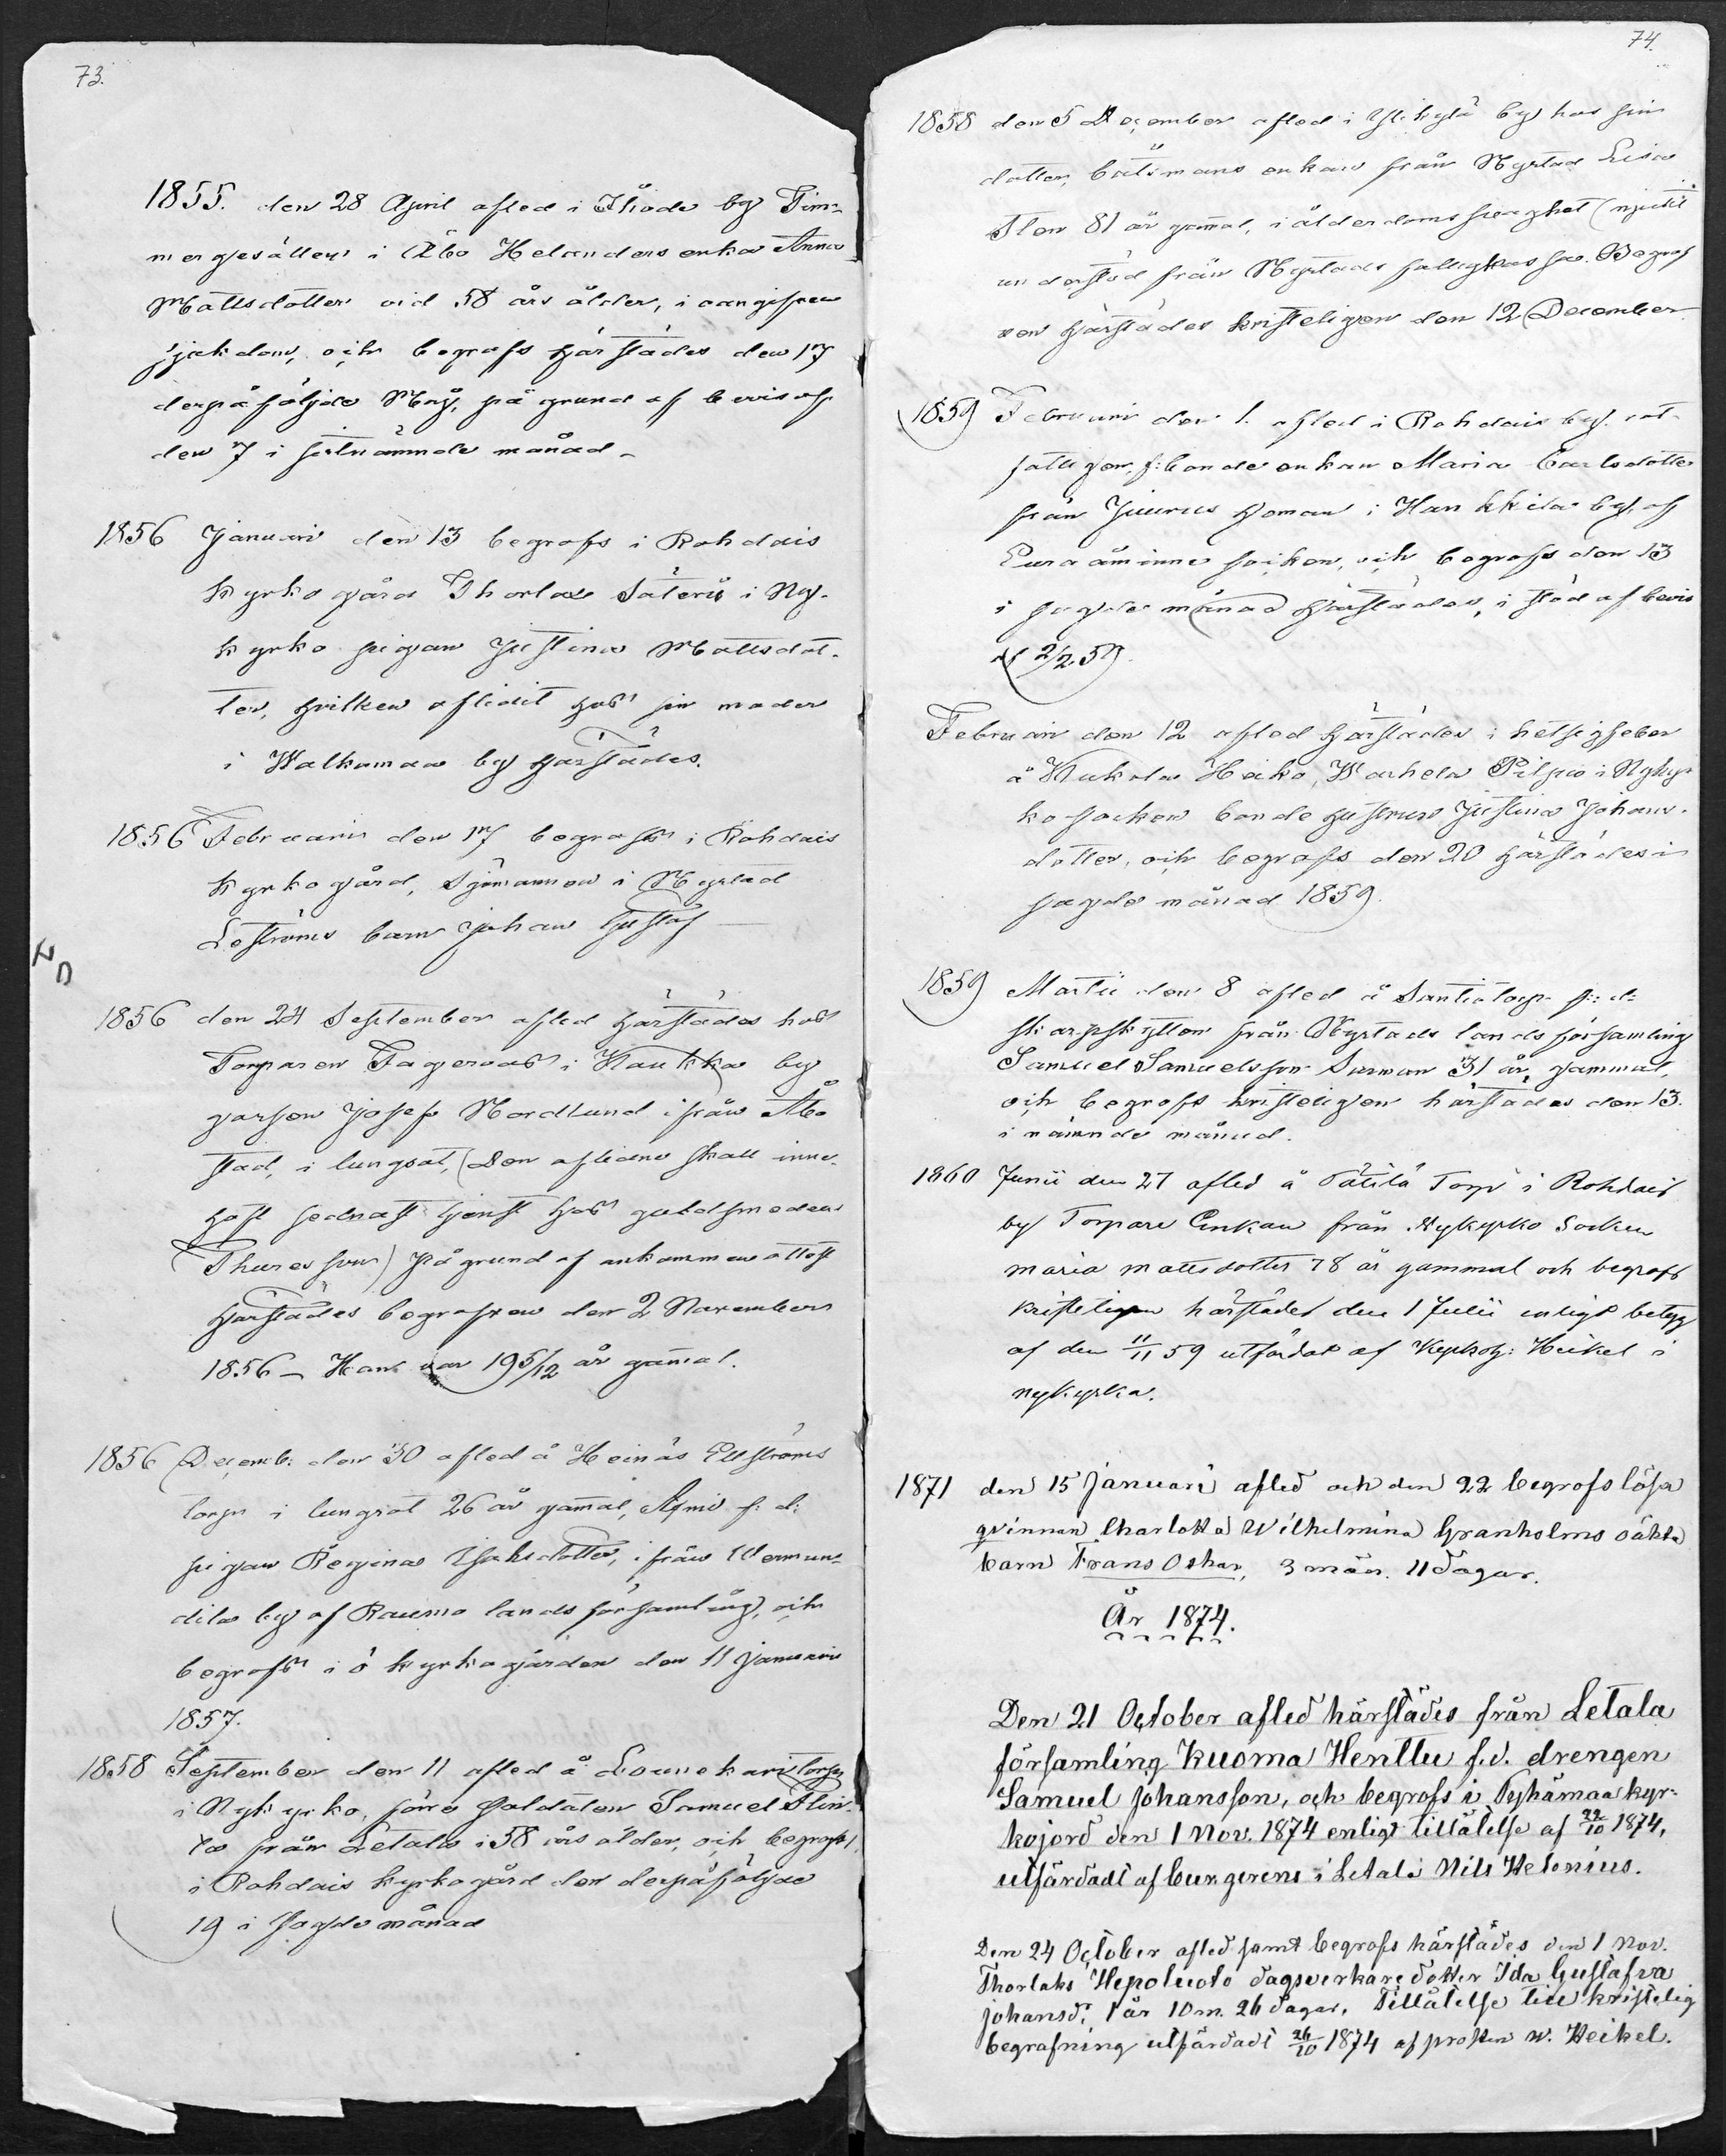 73.
1855. den 28 April afled i Ihode by Tim-
mergesällen i Åbo Helanders enka Anna
Mattsdotter vid 58 års ålder, i oangifven
sjukdom, och begrofs härstädes den 17
derpåföljde Maij, på grund af bevis af
den 7 i sistnämnde månad.
1856 Januari den 13 begrofs i Rohdais
kyrkogård Thorlax Säteris i Ny-
kyrko pigan Justina Mattsdot-
ter, hvilken aflidit hos sin moder
i Walkamaa by härstädes.
1856 Februarii den 17 begrofs i Rohdais
kyrkogård, Sjömannen i Nystad
Löströms barn Johan Gustaf
1856 den 24 September afled härstädes hos
Torparen Fagerroos i Kaukka by
garfven Josef Nordlund ifrån Åbo
stad, i lungsot, (Den aflidne skall inne-
haft sednast tjenst hos guldsmeden
Thuresson) på grund af ankommen attest
härstädes begrafven den 2 November
1856 – Han var 19 5/12 år gam̄al.
1856 Decemb. den 30 afled å Heinäs Ellströms
torp i lungsot 26 år gam̄al, f: d:
pigan Regina Isaksdotter, ifrån Wermun-
dila by af Raumo lands församling, och
begrofs i ö kyrkogården den 11 Januarii
1857.
1858 September den 11 afled å Lounekari torp
i Nykyrko, förre Soldaten Samuel Flin-
ta från Letala i 58 års ålder, och begrofs
i Rohdais kyrkogård den derpåföljde
19 i sagde månad
74.
1858 den 5 December afled i Ylikylä by hos sin
dotter, båtsmans enkan från Nystad Lisa
Sten 81 år gam̄al, i ålderdomssvaghet (njutit
understöd från Nystads fattigkassa. Begraf-
ven härstädes kristeligen den 12 December
1859 Februari den 1. afled i Rohdais by. rot-
fattigen, f: bonde enkan Maria Carlsdotter
från Juurus hemman i Hankkila by af
Euraåminne socken, och begrofs den 13
i sagde månad härstädes, i stöd af bevis
af 2/2 59.
Februari den 12 afled härstädes i hetsigfeber
å Kukola Heiko, Warhela Pilpa i Nykyr-
ko socken bonde hustrun Justina Johans-
dotter, och begrofs den 20 härstädes i
sagde månad 1859.
1859 Martii den 8 afled å Santiotorp f: d:
skarpskytten från Nystads lands församling
Samuel Samuelsson Surman 31 år gammal,
och begrofs kristeligen härstädes den 13.
i nämnde månad.
1860 Junii den 27 afled å Pätilä Torp i Rohdais
by Torpare Enkan från Nykyrko Socken
Maria Mattsdotter 78 år gammal och begrofs
kristeligen härstädes den 1 Julii enligt betyg
af den 11/11 59 utfärdat af Kyrkoh: Heikel i
Nykyrka.
1871 den 15 Januari afled och den 22 begrofs lösa
qvinnan Charlotta Wilhelmina Granholms oäkta
barn Frans Oskar, 3 mån. 11 dagar.
År 1874.
Den 21 October afled härstädes från Letala
församling Kuoma Henttu f.d. drengen
Samuel Johansson, och begrofs i Pyhämaa kyr-
kojord den 1 Nov. 1874 enligt tillåtelse af 22/10 1874,
utfärdadt af bun gerens i Letala Nils Helenius.
Den 24 October afled samt begrofs härstädes den 1 Nov.
Thorlaks Hepoluoto dagsverkare dotter Ida Gustafva
Johansd: 1 år 10 m. 26 dagar. Tillåtelse till kristelig
begrafning utfärdadt 26/10 1874 af prosten W. Heikel.